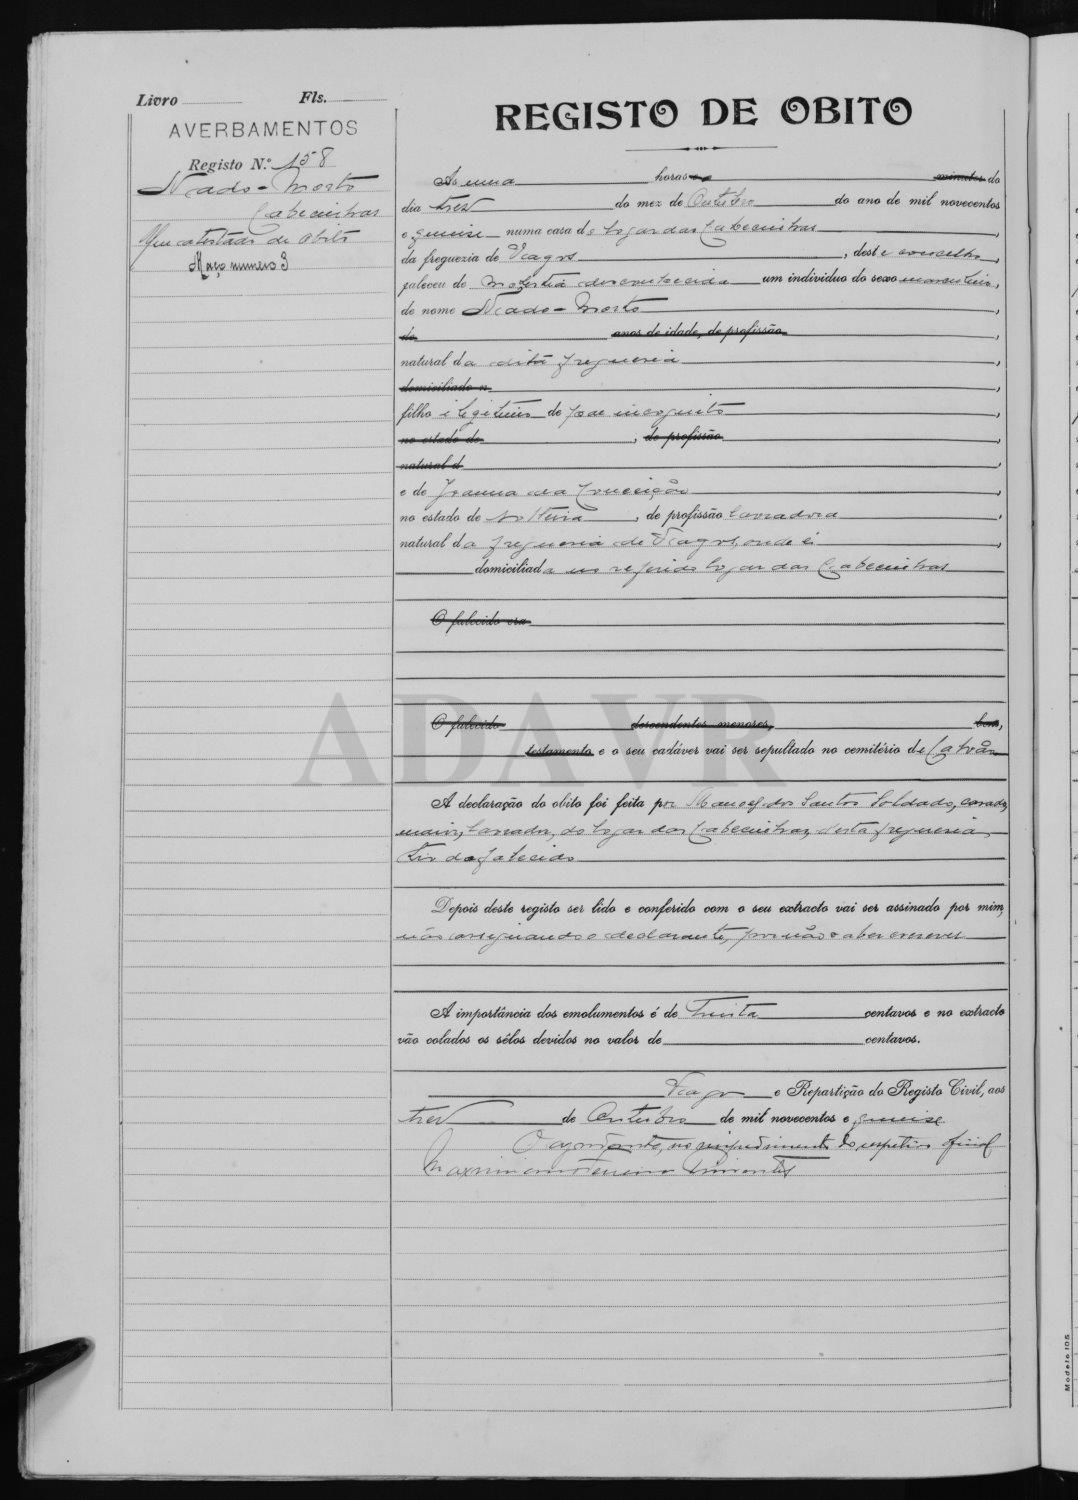 Livro Fls.
AVERBAMENTOS
Registo N.º 158
Nado-Morto
Cabecinhas
Um atestado de obito
Maço numero 3
REGISTO DE OBITO
Ás uma horas e minutos do
dia tres do mez de Outubro do ano de mil novecentos
e quinze numa casa do logar das Cabecinhas,
da freguezia de Vagos, deste concelho,
faleceu de molestia desconhecida um individuo do sexo masculino,
de nome Nado-Morto,
de anos de idade, de profissão,
natural da dita freguesia,
domiciliado n,
filho ilegitimo de pae incognito,
no estado de, de profissão,
natural d,
e de Joanna da Conceição,
no estado de solteira, de profissão lavradora,
natural da freguesia de Vagos, onde é,
domiciliada no referido logar das Cabecinhas
O falecido era
O falecido descendentes menores, bens,
testamento e o seu cadáver vai ser sepultado no cemitério de Calvão
A declaração do obito foi feita por Manoel dos Santos Soldado, casado,
maior, lavrador, do logar das Cabecinhas, desta freguesia,
tio do falecido
Depois deste registo ser lido e conferido com o seu extracto vai ser assinado por mim,
não assignando o declarante, por não saber escrever
A importância dos emolumentos é de Trinta centavos e no extracto
vão colados os sêlos devidos no valor de centavos.
Vagos e Repartição do Registo Civil, aos
tres de Outubro de mil novecentos e quinze
O ajudante, no impedimento do respetivo oficial
Ferreira
ADAVR
Modelo 105